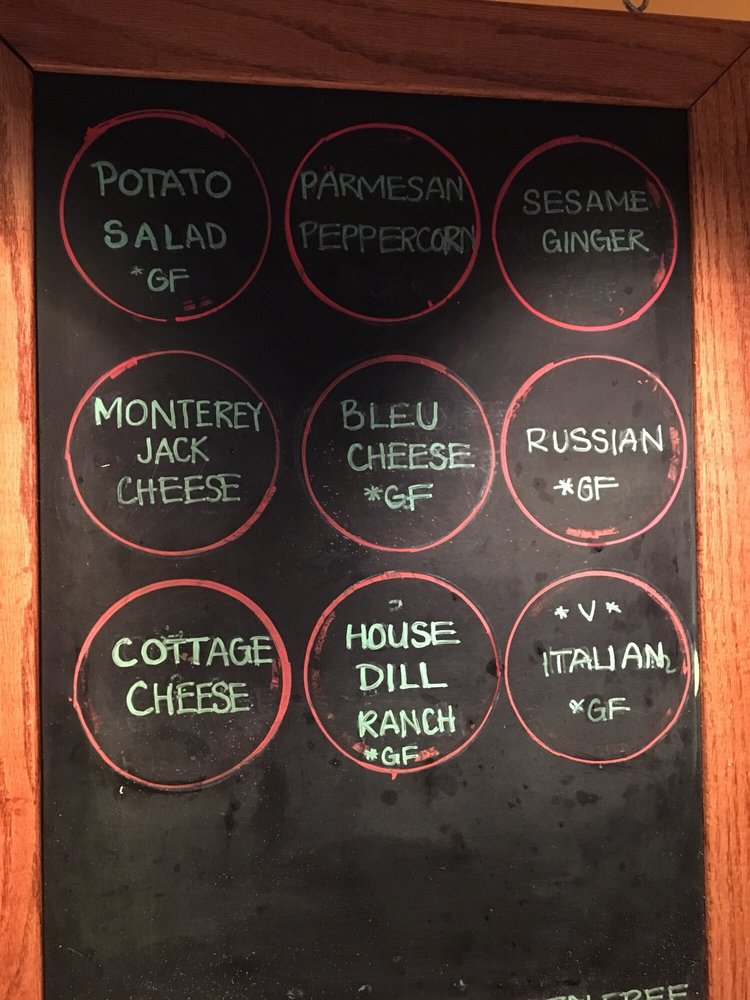 POTATO
SALAD
*GF
PARMESAN
PEPPERCORN
SESAME
GINGER
MONTEREY
JACK
CHEESE
BLEU
CHEESE
*GF
RUSSIAN
*GF
COTTAGE
CHEESE
HOUSE
DILL
RANCH
*GF
*V*
ITALIAN
*GF